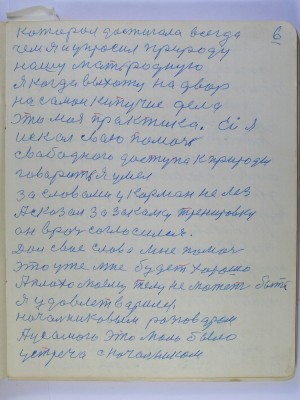 6
которая достигала всегда
чем я и упросил природу
нашу матородную
я когда выхожу на двор
на самом кипучие дела
это моя практика. Ей я
искал сваю помочь
свабодного доступа к природы
говарать я умел
за словами у карман не лез
А сказал за закалку тренировку
он врач согласился.
Дал свае слова мне помоч
это уже мне будет хорошо
А плохо моему телу не может быть
Я удовлетварился
начальниковым разговаром
А у самого это мало было
устреча с начальником